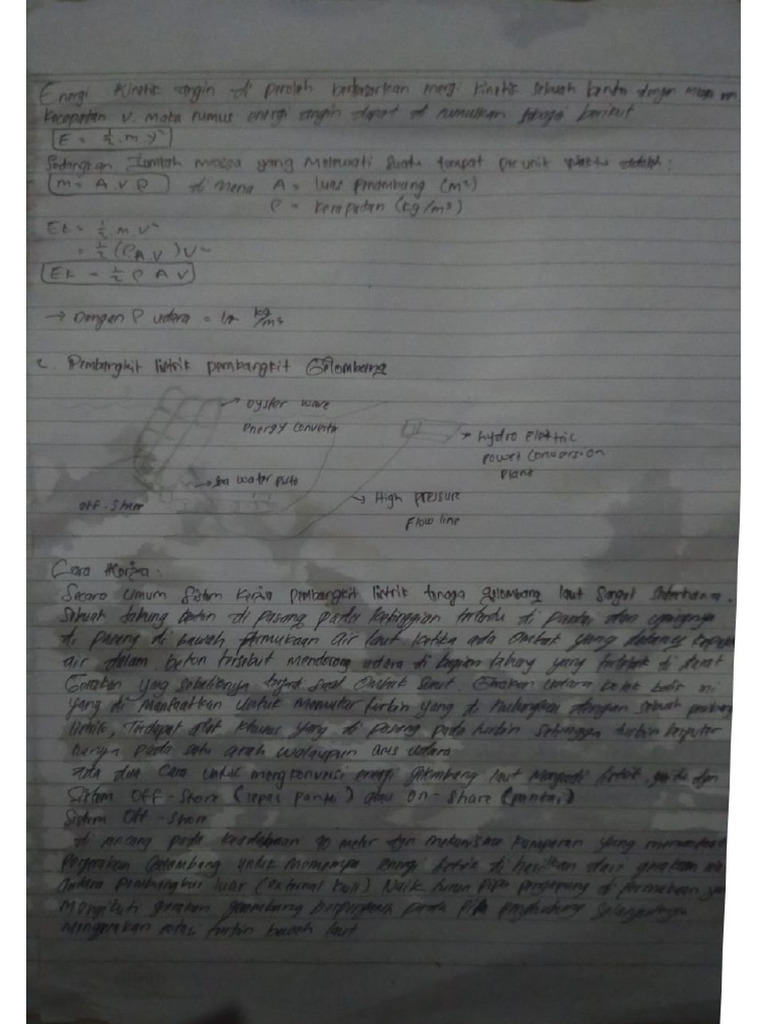 Energi Kinetik angin di peroleh berdasarkan energi kinetik sebuah benda dengan
Kecepatan v. maka rumus energi angin dapat di rumuskan sebagai berikut
E = ½ . m . v²
Sedangkan Jumlah massa yang melewati suatu tempat per unit waktu adalah :
m = A . V ρ di mana A = luas penampang (m²)
ρ = kerapatan (kg/m³)
Ek = ½ m v²
= ½ (ρ A . V) V²
Ek = ½ ρ A V
→ Dengan ρ udara = kg/m³
2. Pembangkit listrik pembangkit Gelombang
→ oyster wave
energy converter
→ hydro elektric
power conversion
plane
→ Sea water
off-shore
→ High pressure
Flow line
Cara Kerja :
Secara Umum Sistem Kerja Pembangkit listrik tenaga gelombang laut Sangat Sederhana.
Sebuah tabung beton di pasang pada ketinggian tertentu di pantai dan ujungnya
di pasang di bawah permukaan air laut ketika ada Ombak yang datang
air dalam beton tersebut mendorong udara di bagian tabung yang terletak di darat
Gerakan yang sebaliknya terjadi saat Ombak Surut. Gerakan udara bolak balik ini
yang di manfaatkan untuk memutar turbin yang di hubungkan dengan sebuah
listrik, Terdapat alat khusus yang di pasang pada turbin sehingga turbin berputar
hanya pada satu arah walaupun arus udara
ada dua cara untuk mengkonversi energi gelombang laut menjadi listrik.
Sistem Off-Shore (lepas pantai) atau On-Share (pantai)
Sistem Off-Shore
di pada kedalaman 40 meter dgn mekanisme kumparan yang
Pergerakan Gelombang untuk memompa energi listrik di hasilkan dari gerakan
antara luar (external) Naik turun pipa di permukaan
Mengikuti gerakan gelombang pada Pipa penghubung Selanjutnya
menggerakan rotasi turbin bawah laut